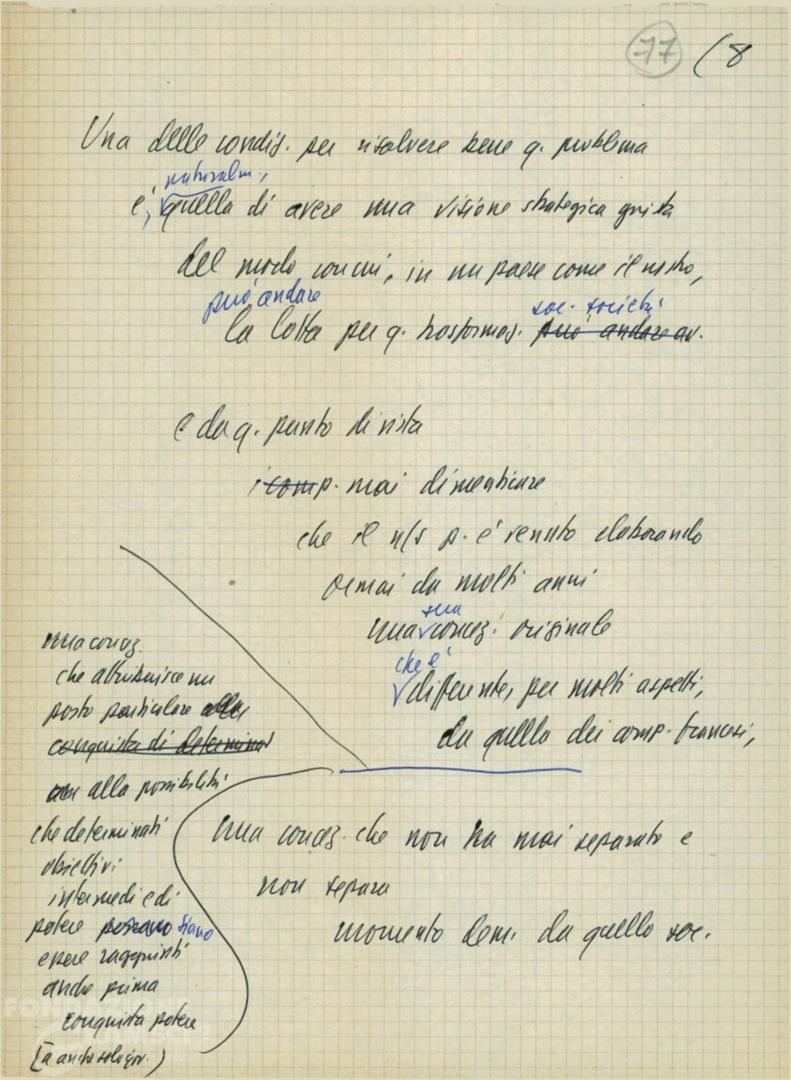 77 (8
Una delle condiz. per risolvere bene q. problema
naturalm.,
è, quella di avere una visione strategica giusta
del modo con cui, in un paese come il nostro,
può andare
soc. società
la lotta per q. trasformaz. può andare av.
e da q. punto di vista
i comp. mai dimenticare
che il n/s p. è venuto elaborando
ormai da molti anni
sua
una concez. originale
che è
differente, per molti aspetti,
da quella dei comp. francesi,
una concez. che non ha mai separato e
non separa
momento dem. da quello soc.
una concez.
che attribuisce un
posto particolare alla
conquista di determinat
alla possibilità
che determinati
obiettivi
intermedi e di
potere possano siano
essere raggiunti
anche prima
conquista potere